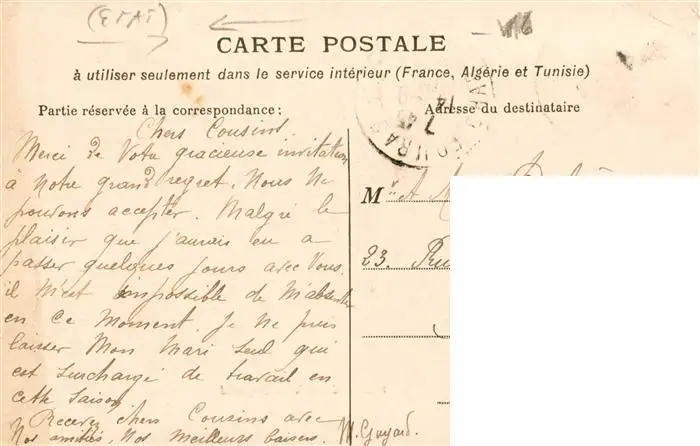 (ETAT)
CARTE POSTALE
à utiliser seulement dans le service intérieur (France, Algérie et Tunisie)
Partie réservée à la correspondance:
Adresse du destinataire
Chers Cousins.
Merci de Votre gracieuse invitation
à Notre grand regret. Nous Ne
pouvons accepter. Malgré le
plaisir que j'aurais eu a
passer quelques jours avec Vous.
il M'est impossible de M'absenter
en Ce Moment. Je Ne puis
laisser Mon Mari seul qui
est surchargé de travail en
cette saison.
Recevez chers Cousins avec
Nos amitiés, Nos meilleurs baisers. M. Guyard.
M
23. Rue
FOURAS